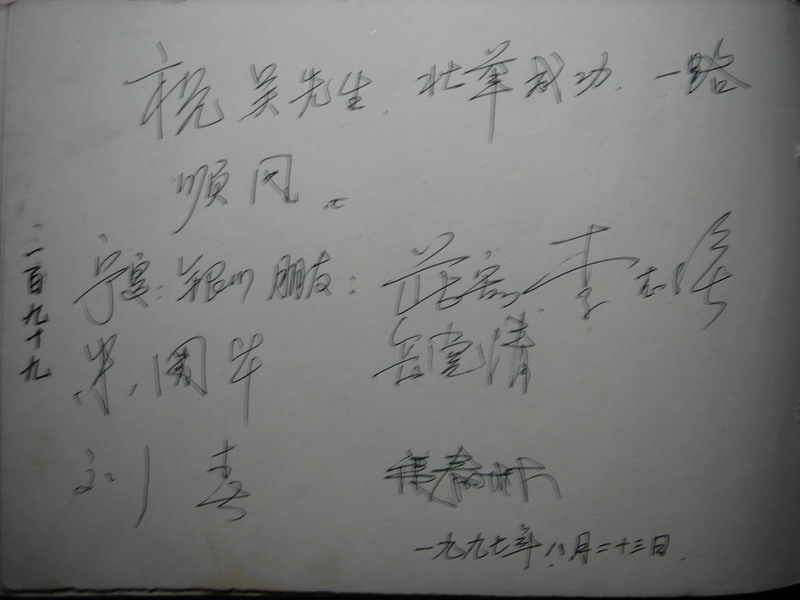 祝吴先生.壮举成功.一路
顺风。
宁夏:银川朋友: 李志
朱国华
岳党清
刘春
一九九七年.八月二十三日.
二百九十九